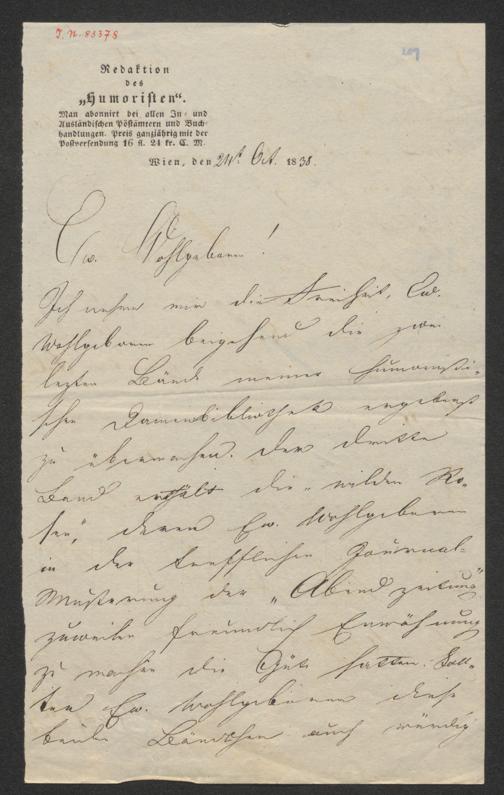 I. N. 83378
209
Redaktion
des
„Humoristen“.
Man abonnirt bei allen In- und
Ausländischen Postämtern und Buch-
handlungen. Preis ganzjährig mit der
Postversendung 16 fl. 24 kr. C. M.
Wien, den 24t. Oct. 1838.
Ew. Wohlgeboren!
Ich nehme mir die Freiheit, Ew.
Wohlgeboren beigehend die zwei
lezten Bände meiner humoristi-
schen Damenbibliothek ergebenst
zu übermachen. Der dritte
Band enthält die „wilden Ro-
sen“, deren Ew. Wohlgeboren
in der trefflichen Journal-
Musterung der „Abendzeitung“
zuweilen freundlich Erwähnung
zu machen die Güte hatten. Soll-
ten Ew. Wohlgeboren diese
beide Bändchen auch würdig